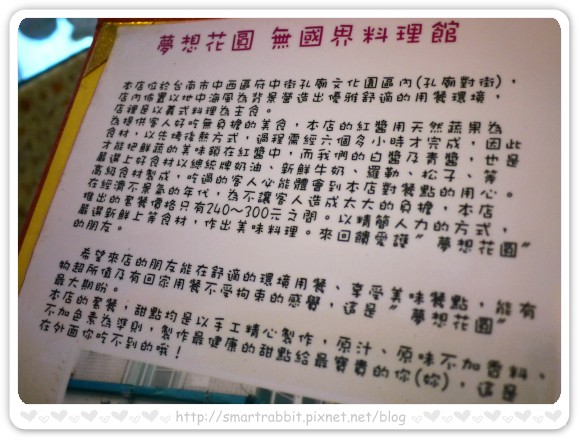 夢想花園 無國界料理館
本店位於台南市中西區府中街孔廟文化園區內(孔廟對街),
店內佈置以地中海風為背景營造出優雅舒適的用餐環境,
店裡是以義式料理為主食。
為提供客人好吃無負擔的美食,本店的紅醬用天然蔬果為
食材,以先烤後熬方式,過程需經六個多小時才完成,因此
才能把鮮蔬的美味鎖在紅醬中,而我們的白醬及青醬,也是
嚴選上好食材以總統牌奶油、新鮮牛奶、羅勒、松子、等
高級食材製成,吃過的客人心能體會到本店對餐點的用心。
在經濟不景氣的年代,為不讓客人造成太大的負擔,本店
推出的套餐價格只有240~300元之間。以精簡人力的方式,
嚴選新鮮上等食材,作出美味料理。來回饋愛護"夢想花園"
的朋友。
希望來店的朋友能在舒適的環境用餐、享受美味餐點,能有
物超所值及有回家用餐不受拘束的感覺,這是"夢想花園"
最大期盼。
本店的套餐,甜點均是以手工精心製作,原汁、原味不加香料、
不加色素為準則,製作最健康的甜點給最寶貴的你(妳),這是
在外面你吃不到的哦!
http://smartrabbit.pixnet.net/blog